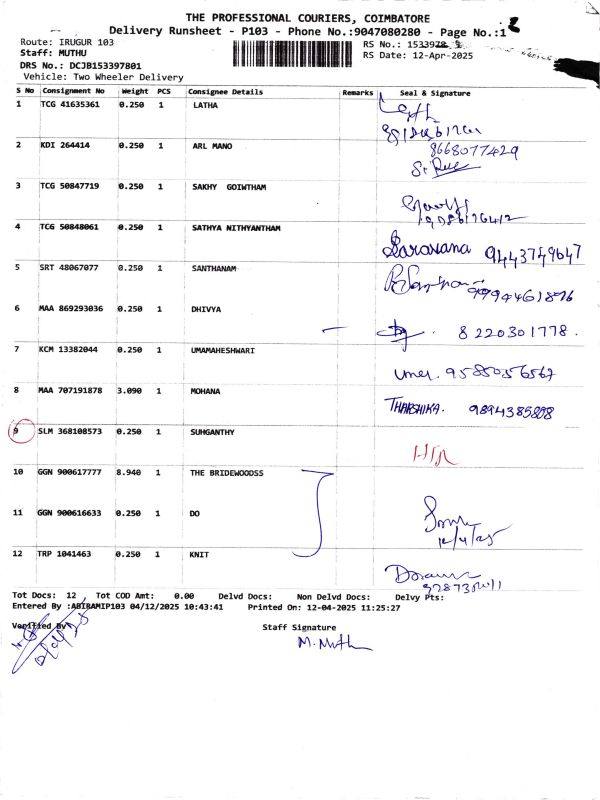 THE PROFESSIONAL COURIERS, COIMBATORE
Delivery Runsheet - P103 - Phone No.:9047080280 - Page No.:1
Route: IRUGUR 103
Staff: MUTHU
RS No.: 1533978
DRS No.: DCJB153397801
RS Date: 12-Apr-2025
Vehicle: Two Wheeler Delivery
S No Consignment No Weight PCS Consignee Details Remarks Seal & Signature
1 TCG 41635361 0.250 1 LATHA
2 KDI 264414 0.250 1 ARL MANO 8668077429
3 TCG 50847719 0.250 1 SAKHY GOIWTHAM
4 TCG 50848061 0.250 1 SATHYA NITHYANTHAM Saravana 9443749647
5 SRT 48067077 0.250 1 SANTHANAM
6 MAA 869293036 0.250 1 DHIVYA 8220301778.
7 KCM 13382044 0.250 1 UMAMAHESHWARI umer. 9585056567
8 MAA 707191878 3.090 1 MOHANA THARSHIKA. 9894385808
9 SLM 368108573 0.250 1 SUHGANTHY
10 GGN 900617777 8.940 1 THE BRIDEWOODSS
11 GGN 900616633 0.250 1 DO
12/4/25
12 TRP 1041463 0.250 1 KNIT
Tot Docs: 12 Tot COD Amt: 0.00 Delvd Docs: Non Delvd Docs: Delvy Pts:
Entered By :ABIRAMIP103 04/12/2025 10:43:41 Printed On: 12-04-2025 11:25:27
Verified By
Staff Signature
M. Muth